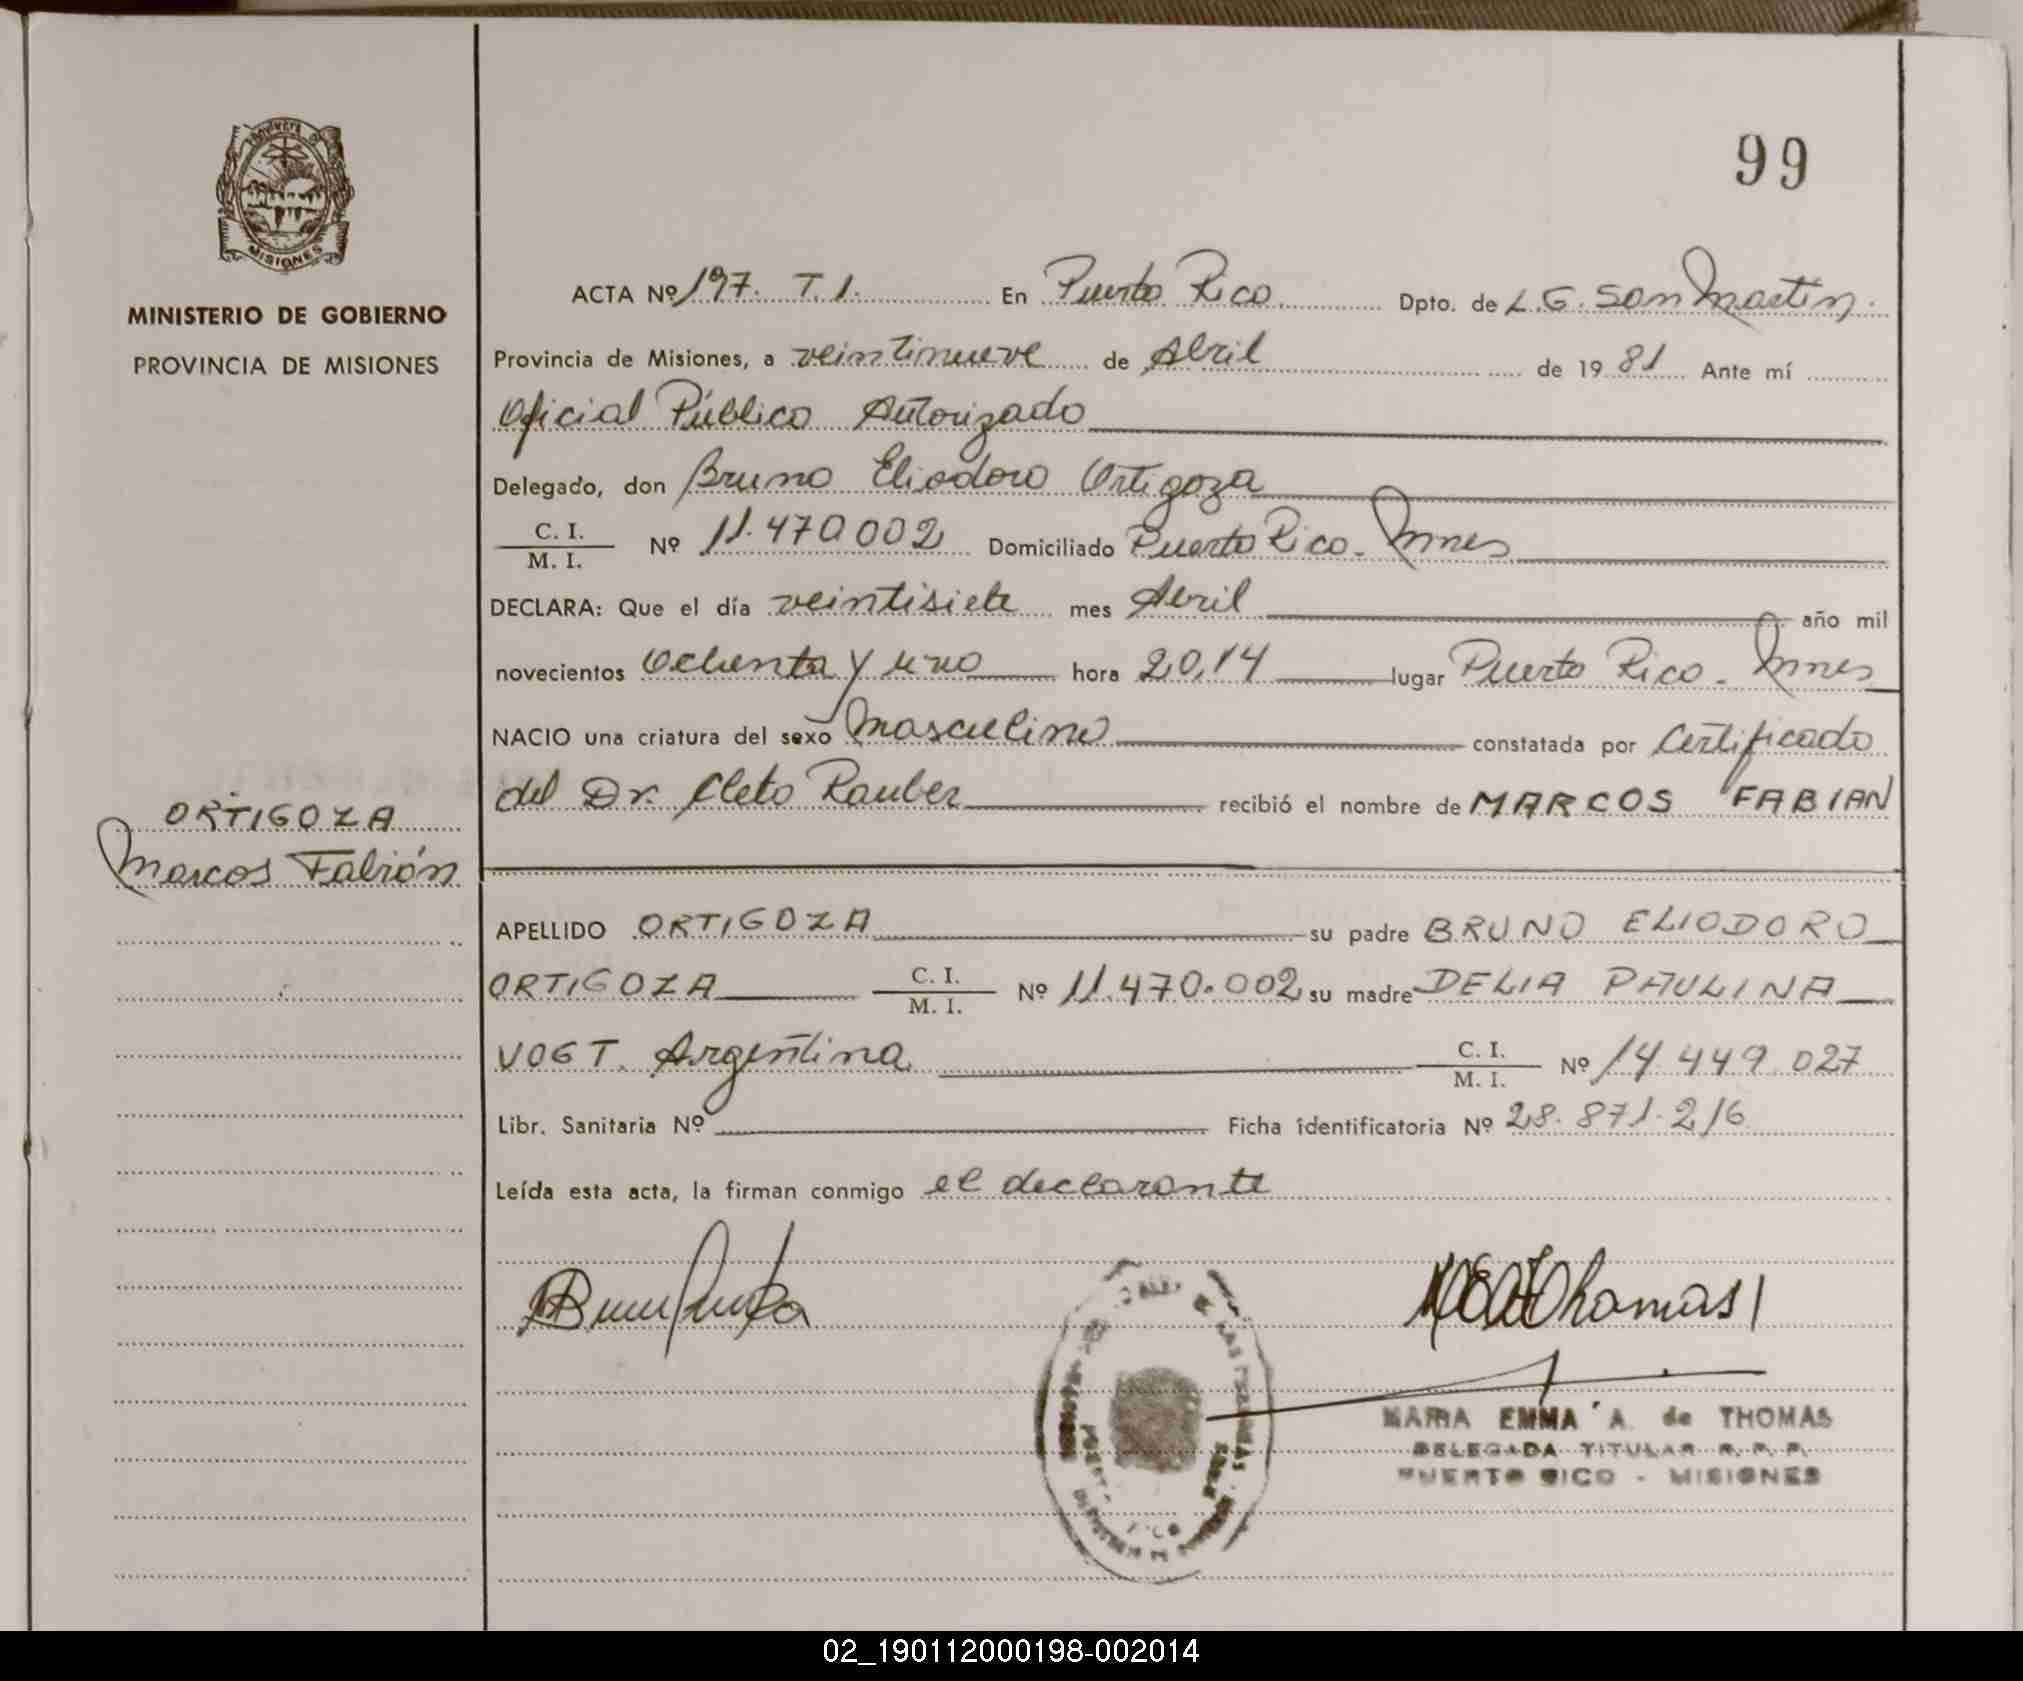 99
MISIONES
MINISTERIO DE GOBIERNO
PROVINCIA DE MISIONES
ORTIGOZA
Marcos Fabián
ACTA Nº 197. T.1. En Puerto Rico Dpto. de L.G. San Martín.
Provincia de Misiones, a veintinueve de Abril de 1981 Ante mí
Oficial Público Autorizado
Delegado, don Bruno Eliodoro Ortigoza
C. I.
M. I. Nº 11.470002 Domiciliado Puerto Rico. Mnes
DECLARA: Que el día veintisiete mes Abril año mil
novecientos Ochenta y uno hora 20,14 lugar Puerto Rico. Mnes
NACIO una criatura del sexo Masculino constatada por Certificado
del Dr. Cleto Rauber recibió el nombre de MARCOS FABIAN
APELLIDO ORTIGOZA su padre BRUNO ELIODORO
ORTIGOZA C. I. M. I. Nº 11.470.002 su madre DELIA PAULINA
VOGT. Argentina C. I. M. I. Nº 14.449.027
Libr. Sanitaria Nº Ficha identificatoria Nº 28.871.216
Leída esta acta, la firman conmigo el declarante
Thomas
MARIA EMMA A. de THOMAS
DELEGADA TITULAR R. P. P.
PUERTO RICO - MISIONES
02_190112000198-002014